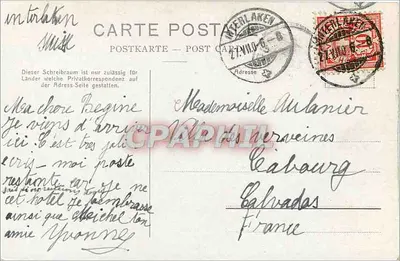 interlaken
suisse
CARTE POSTALE
POSTKARTE — POST CARD
INTERLAKEN
INTERLAKEN
Dieser Schreibraum ist nur zulässig für
Länder welche Privatkorrespondenzen auf
der Adress-Seite gestatten.
Adresse
Ma chere Regine
Je viens d'arriver
ici. C'est très joli
ecris-moi poste
restante car je ne
cet hotel Je t'embrasse
ainsi que Michel ton
amie Yvonne
Mademoiselle Aulanier
Villa des Verveines
Cabourg
Calvados
France
CPAPHIL